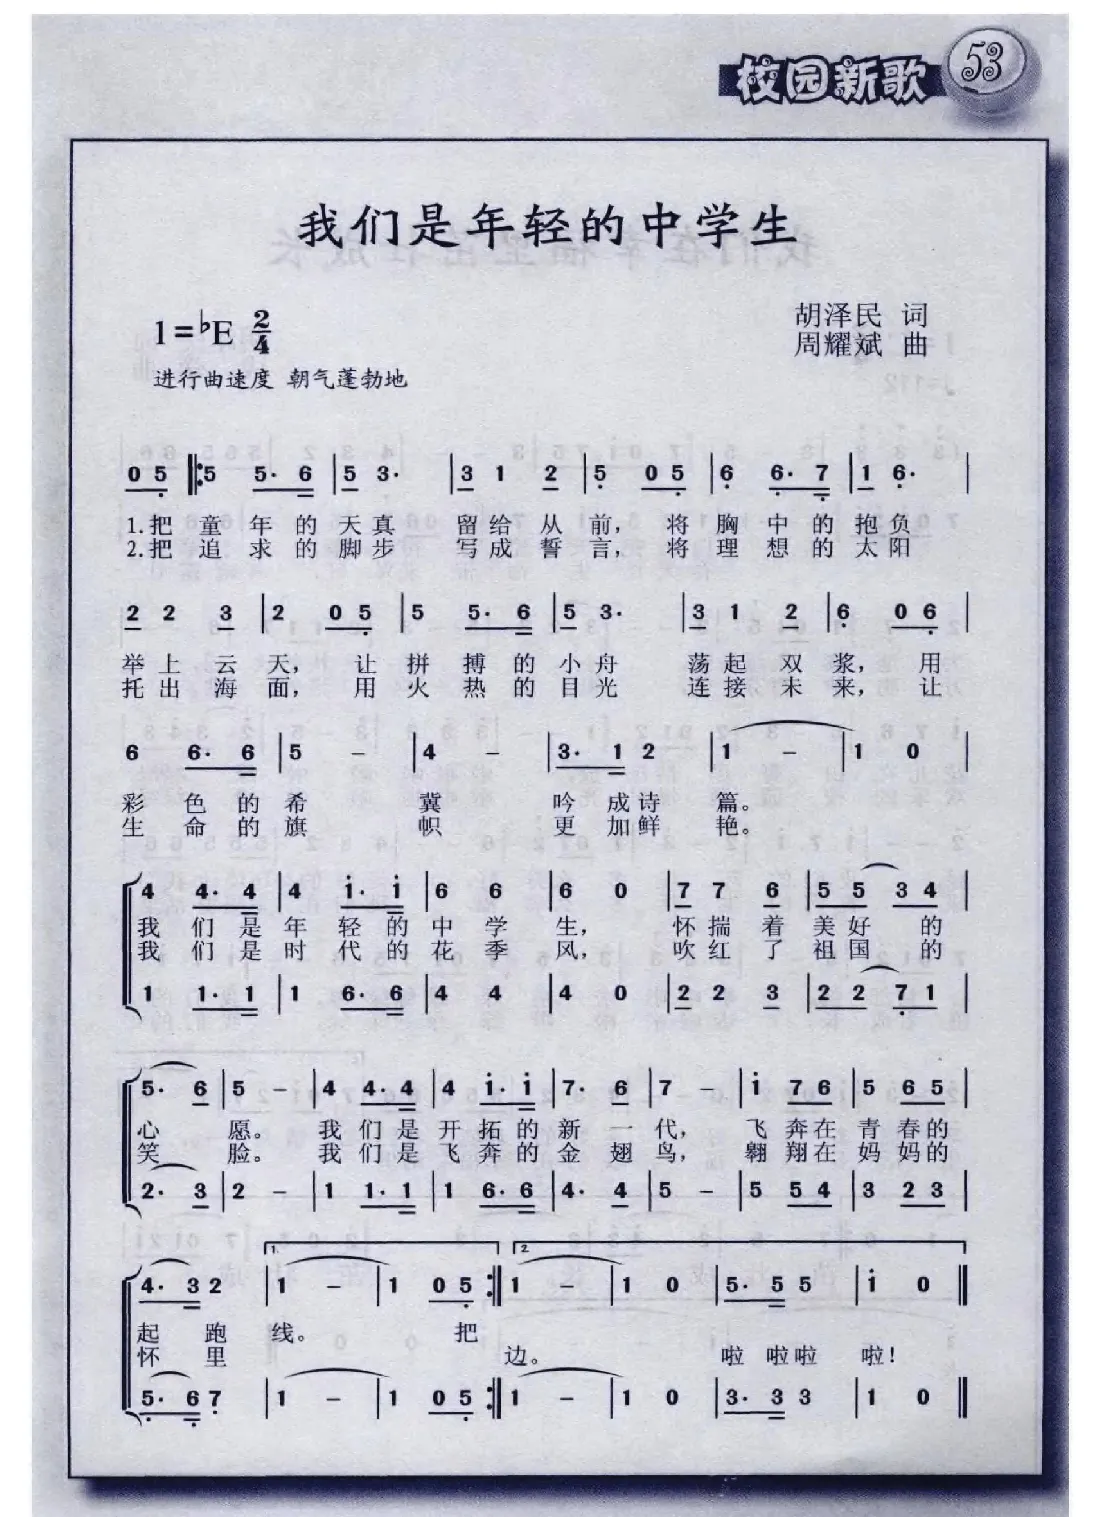 校园新歌 53
我们是年轻的中学生
1=♭E 2/4
胡泽民 词
周耀斌 曲
进行曲速度 朝气蓬勃地
0 5 ‖: 5 5· 6 | 5 3· | 3 1 2 | 5 0 5 | 6 6· 7 | 1 6· |
1.把童年的天真 留给从前，将胸中的抱负
2.把追求的脚步 写成誓言，将理想的太阳
2 2 3 | 2 0 5 | 5 5· 6 | 5 3· | 3 1 2 | 6 0 6 |
举上云天，让拼搏的小舟 荡起双浆，用
托出海面，用火热的目光 连接未来，让
6 6· 6 | 5 − | 4 − | 3· 1 2 | 1 − | 1 0 |
彩色的希 冀 吟成诗 篇。
生命的旗 帜 更加鲜 艳。
4 4· 4 | 4 i· i | 6 6 | 6 0 | 7 7 6 | 5 5 3 4 |
我们是年轻的中学生，怀揣着美好的
我们是时代的花季风，吹红了祖国的
1 1· 1 | 1 6· 6 | 4 4 | 4 0 | 2 2 3 | 2 2 7 1 |
5· 6 | 5 − | 4 4· 4 | 4 i· i | 7· 6 | 7 − | i 7 6 | 5 6 5 |
心 愿。我们是开拓的新一代，飞奔在青春的
笑 脸。我们是飞奔的金翅鸟，翱翔在妈妈的
2· 3 | 2 − | 1 1· 1 | 1 6· 6 | 4· 4 | 5 − | 5 5 4 | 3 2 3 |
1. 2.
4· 3 2 | 1 − | 1 0 5 :‖ 1 − | 1 0 | 5· 5 5 | i 0 ‖
起跑线。 把
怀里 边。 啦 啦啦 啦！
5· 6 7 | 1 − | 1 0 5 :‖ 1 − | 1 0 | 3· 3 3 | 1 0 ‖